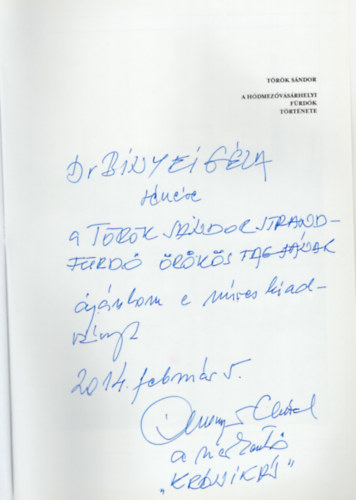 TÖRÖK SÁNDOR
A HÓDMEZŐVÁSÁRHELYI
FÜRDŐK
TÖRTÉNETE
Dr BINYEI GÉZA
részére
a TÖRÖK SÁNDOR STRAND-
FÜRDŐ ÖRÖKÖS TAGJÁNAK
ajánlom e míves kiad-
ványt
2014. február 5.
a
"KRÓNIKÁS"